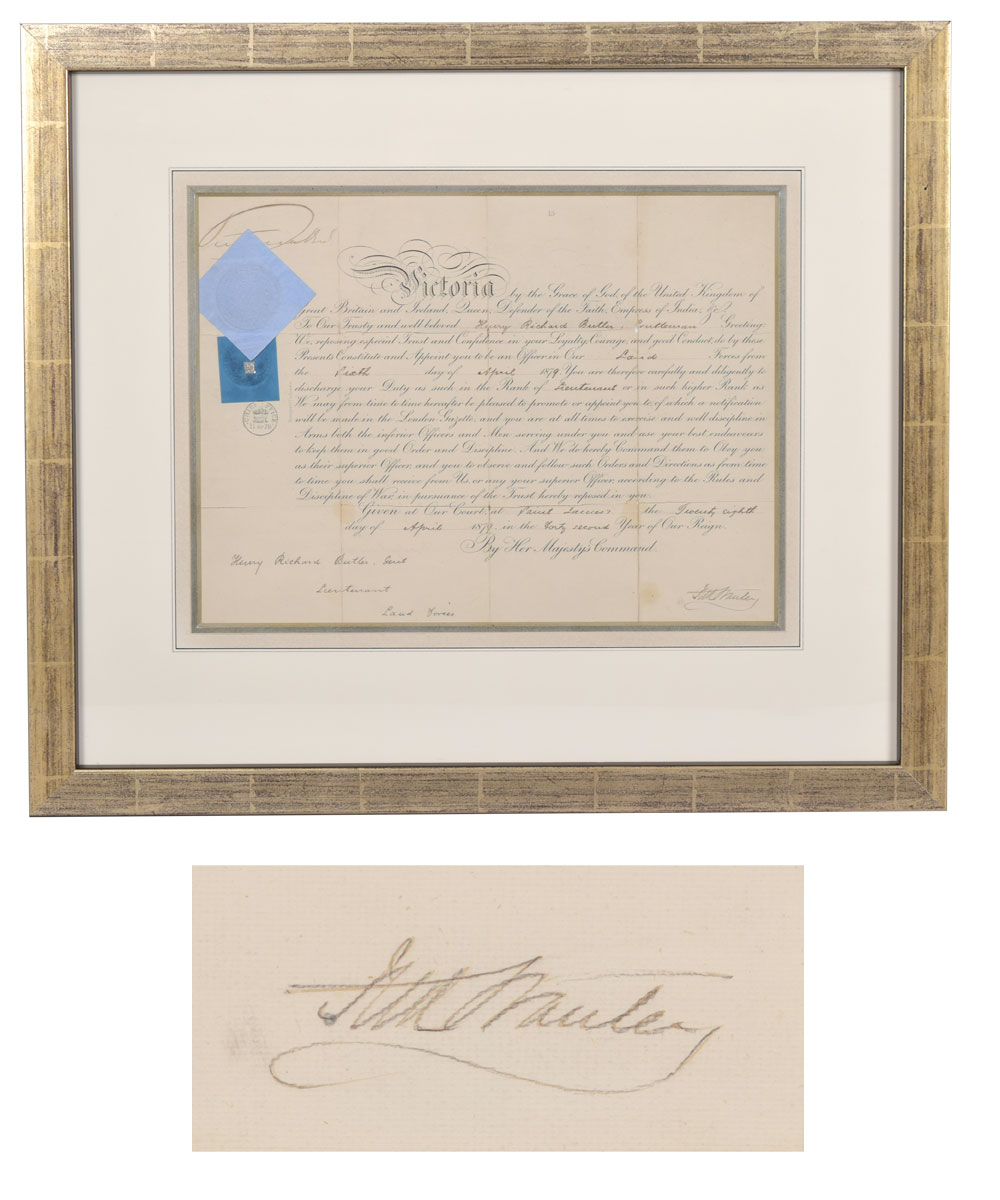 15
Victoria by the Grace of God, of the United Kingdom of
Great Britain and Ireland, Queen, Defender of the Faith, Empress of India, &c.
To Our Trusty and well beloved Henry Richard Butler, Gentleman Greeting
We, reposing especial Trust and Confidence in your Loyalty, Courage, and good Conduct, do by these
Presents Constitute and Appoint you to be an Officer in Our Land Forces from
the Sixth day of April 1879. You are therefore carefully and diligently to
discharge your Duty as such in the Rank of Lieutenant or in such higher Rank as
We may from time to time hereafter be pleased to promote or appoint you to, of which a notification
will be made in the London Gazette, and you are at all times to exercise and well discipline in
Arms both the inferior Officers and Men serving under you and use your best endeavours
to keep them in good Order and Discipline. And We do hereby Command them to Obey you
as their superior Officer, and you to observe and follow such Orders and Directions as from time
to time you shall receive from Us, or any your superior Officer, according to the Rules and
Discipline of War, in pursuance of the Trust hereby reposed in you.
Given at Our Court, at Saint James's the Twenty eighth
day of April 1879 in the Forty second Year of Our Reign.
By Her Majesty's Command.
Henry Richard Butler, Gent
Lieutenant
Land Forces
Fred Stanley
Fred Stanley